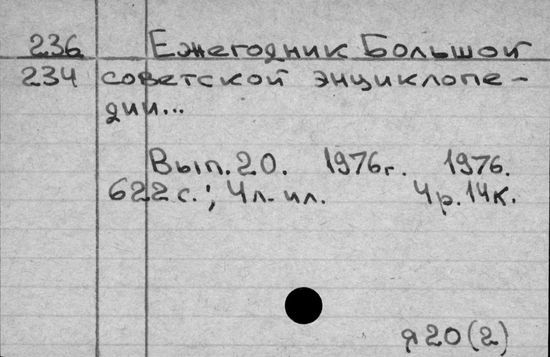 236 Ежегодник Большой
234 советской энциклопе-
дии...
Вып. 20. 1976г. 1976.
622 с.; 4 л. ил. 4 р. 14 к.
я20(2)